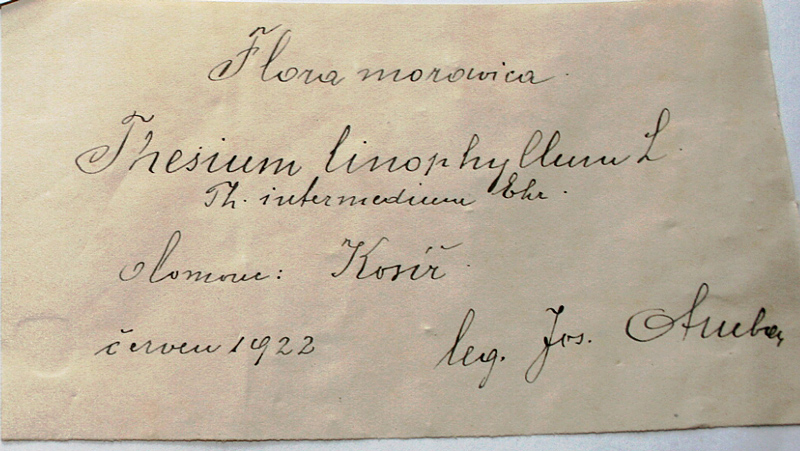 Flora moravica
Thesium linophyllum L.
Th. intermedium Ehr.
Olomouc: Kosíř
červen 1922
leg. Jos.